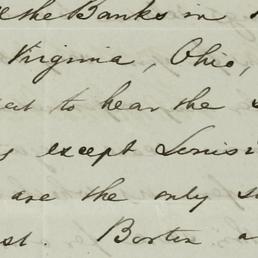 the Banks in
Virginia, Ohio,
to hear the
except Louis
are the only
Boston a